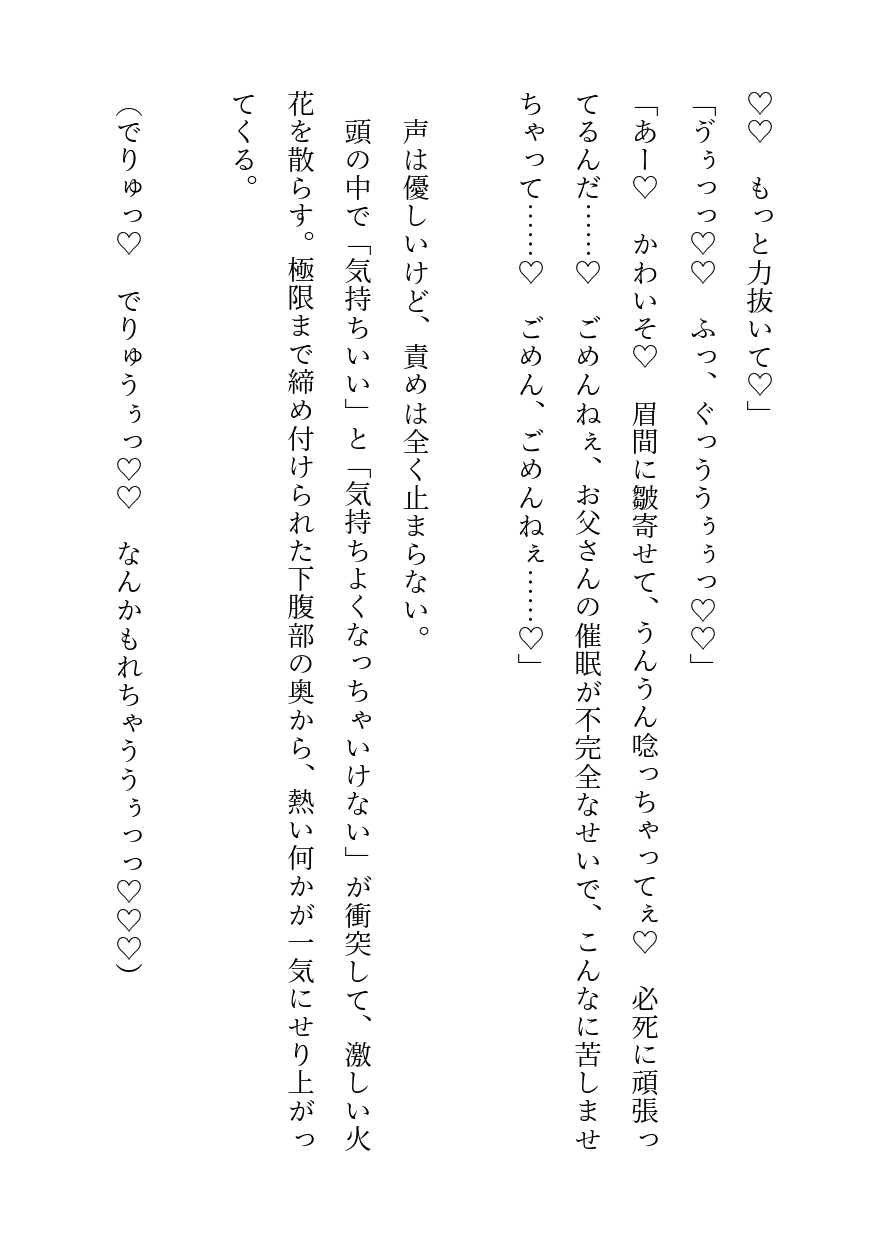 ♡♡　もっと力抜いて♡」
「ゔぅっっ♡♡　ふっ、ぐっううぅぅっ♡♡」
「あー♡　かわいそ♡　眉間に皺寄せて、うんうん唸っちゃってぇ♡　必死に頑張っ
てるんだ……♡　ごめんねぇ、お父さんの催眠が不完全なせいで、こんなに苦しませ
ちゃって……♡　ごめん、ごめんねぇ……♡」
　声は優しいけど、責めは全く止まらない。
　頭の中で「気持ちいい」と「気持ちよくなっちゃいけない」が衝突して、激しい火
花を散らす。極限まで締め付けられた下腹部の奥から、熱い何かが一気にせり上がっ
てくる。
（でりゅっ♡　でりゅうぅっ♡♡　なんかもれちゃううぅっっ♡♡♡）